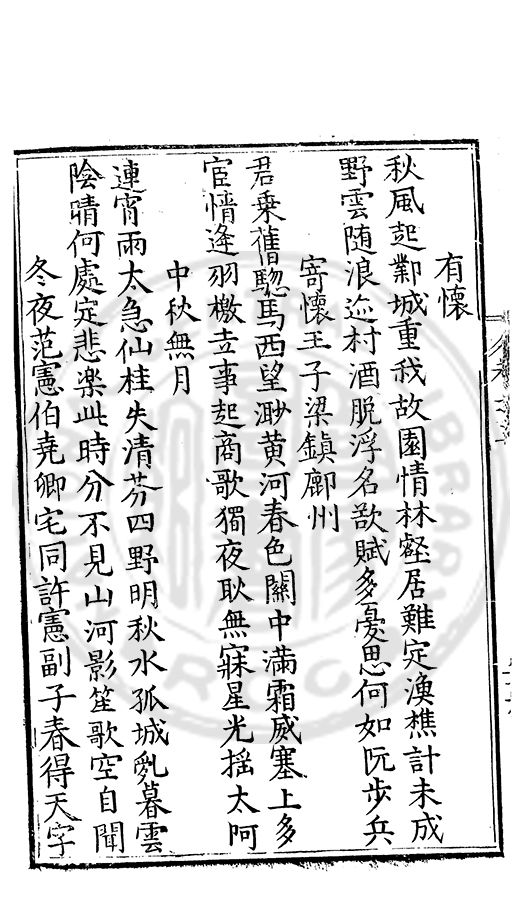 有懷
秋風起鄴城重我故園情林壑居難定漁樵計未成
野雲随浪迹村酒脱浮名欲賦多憂思何如阮步兵
寄懷王子梁鎮鄜州
君乗舊驄馬西望渺黄河春色關中滿霜威塞上多
宦情逢羽檄吉事起商歌獨夜耿無寐星光揺太阿
中秋無月
連宵雨太急仙桂失清芬四野明秋水孤城亂暮雲
陰晴何處定悲楽此時分不見山河影笙歌空自聞
冬夜范憲伯堯卿宅同許憲副子春得天字